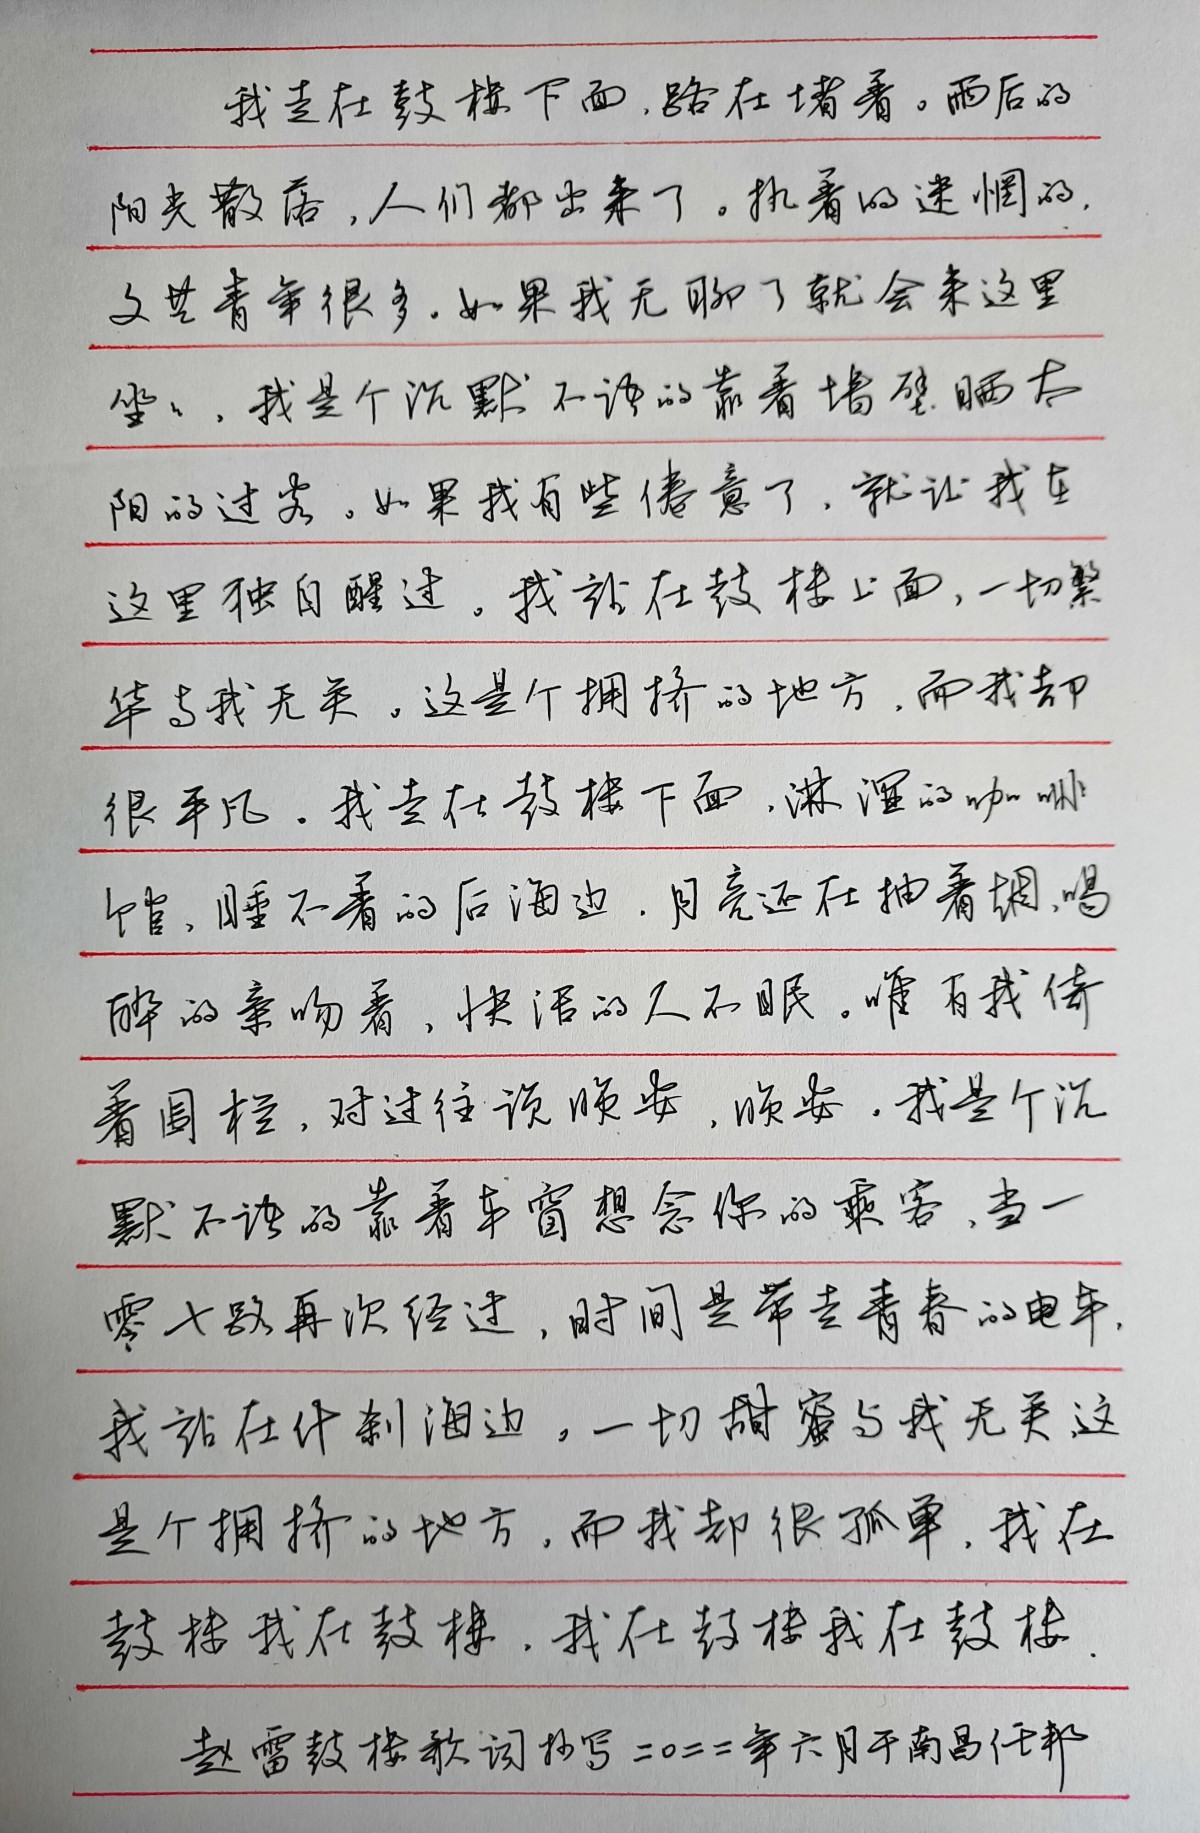 我走在鼓楼下面，路在堵着。雨后的
阳光散落，人们都出来了。执着的迷惘的，
文艺青年很多。如果我无聊了就会来这里
坐坐，我是个沉默不语的靠着墙壁晒太
阳的过客。如果我有些倦意了，就让我在
这里独自醒过。我站在鼓楼上面，一切繁
华与我无关。这是个拥挤的地方，而我却
很平凡。我走在鼓楼下面，淋湿的咖啡
馆，睡不着的后海边，月亮还在抽着烟，喝
醉的亲吻着，快活的人不眠。唯有我倚
着围栏，对过往说晚安，晚安。我是个沉
默不语的靠着车窗想念你的乘客，当一
零七路再次经过，时间是带走青春的电车，
我站在什刹海边，一切甜蜜与我无关，这
是个拥挤的地方，而我却很孤单，我在
鼓楼我在鼓楼，我在鼓楼我在鼓楼。
赵雷鼓楼歌词抄写二〇二二年六月于南昌任邦